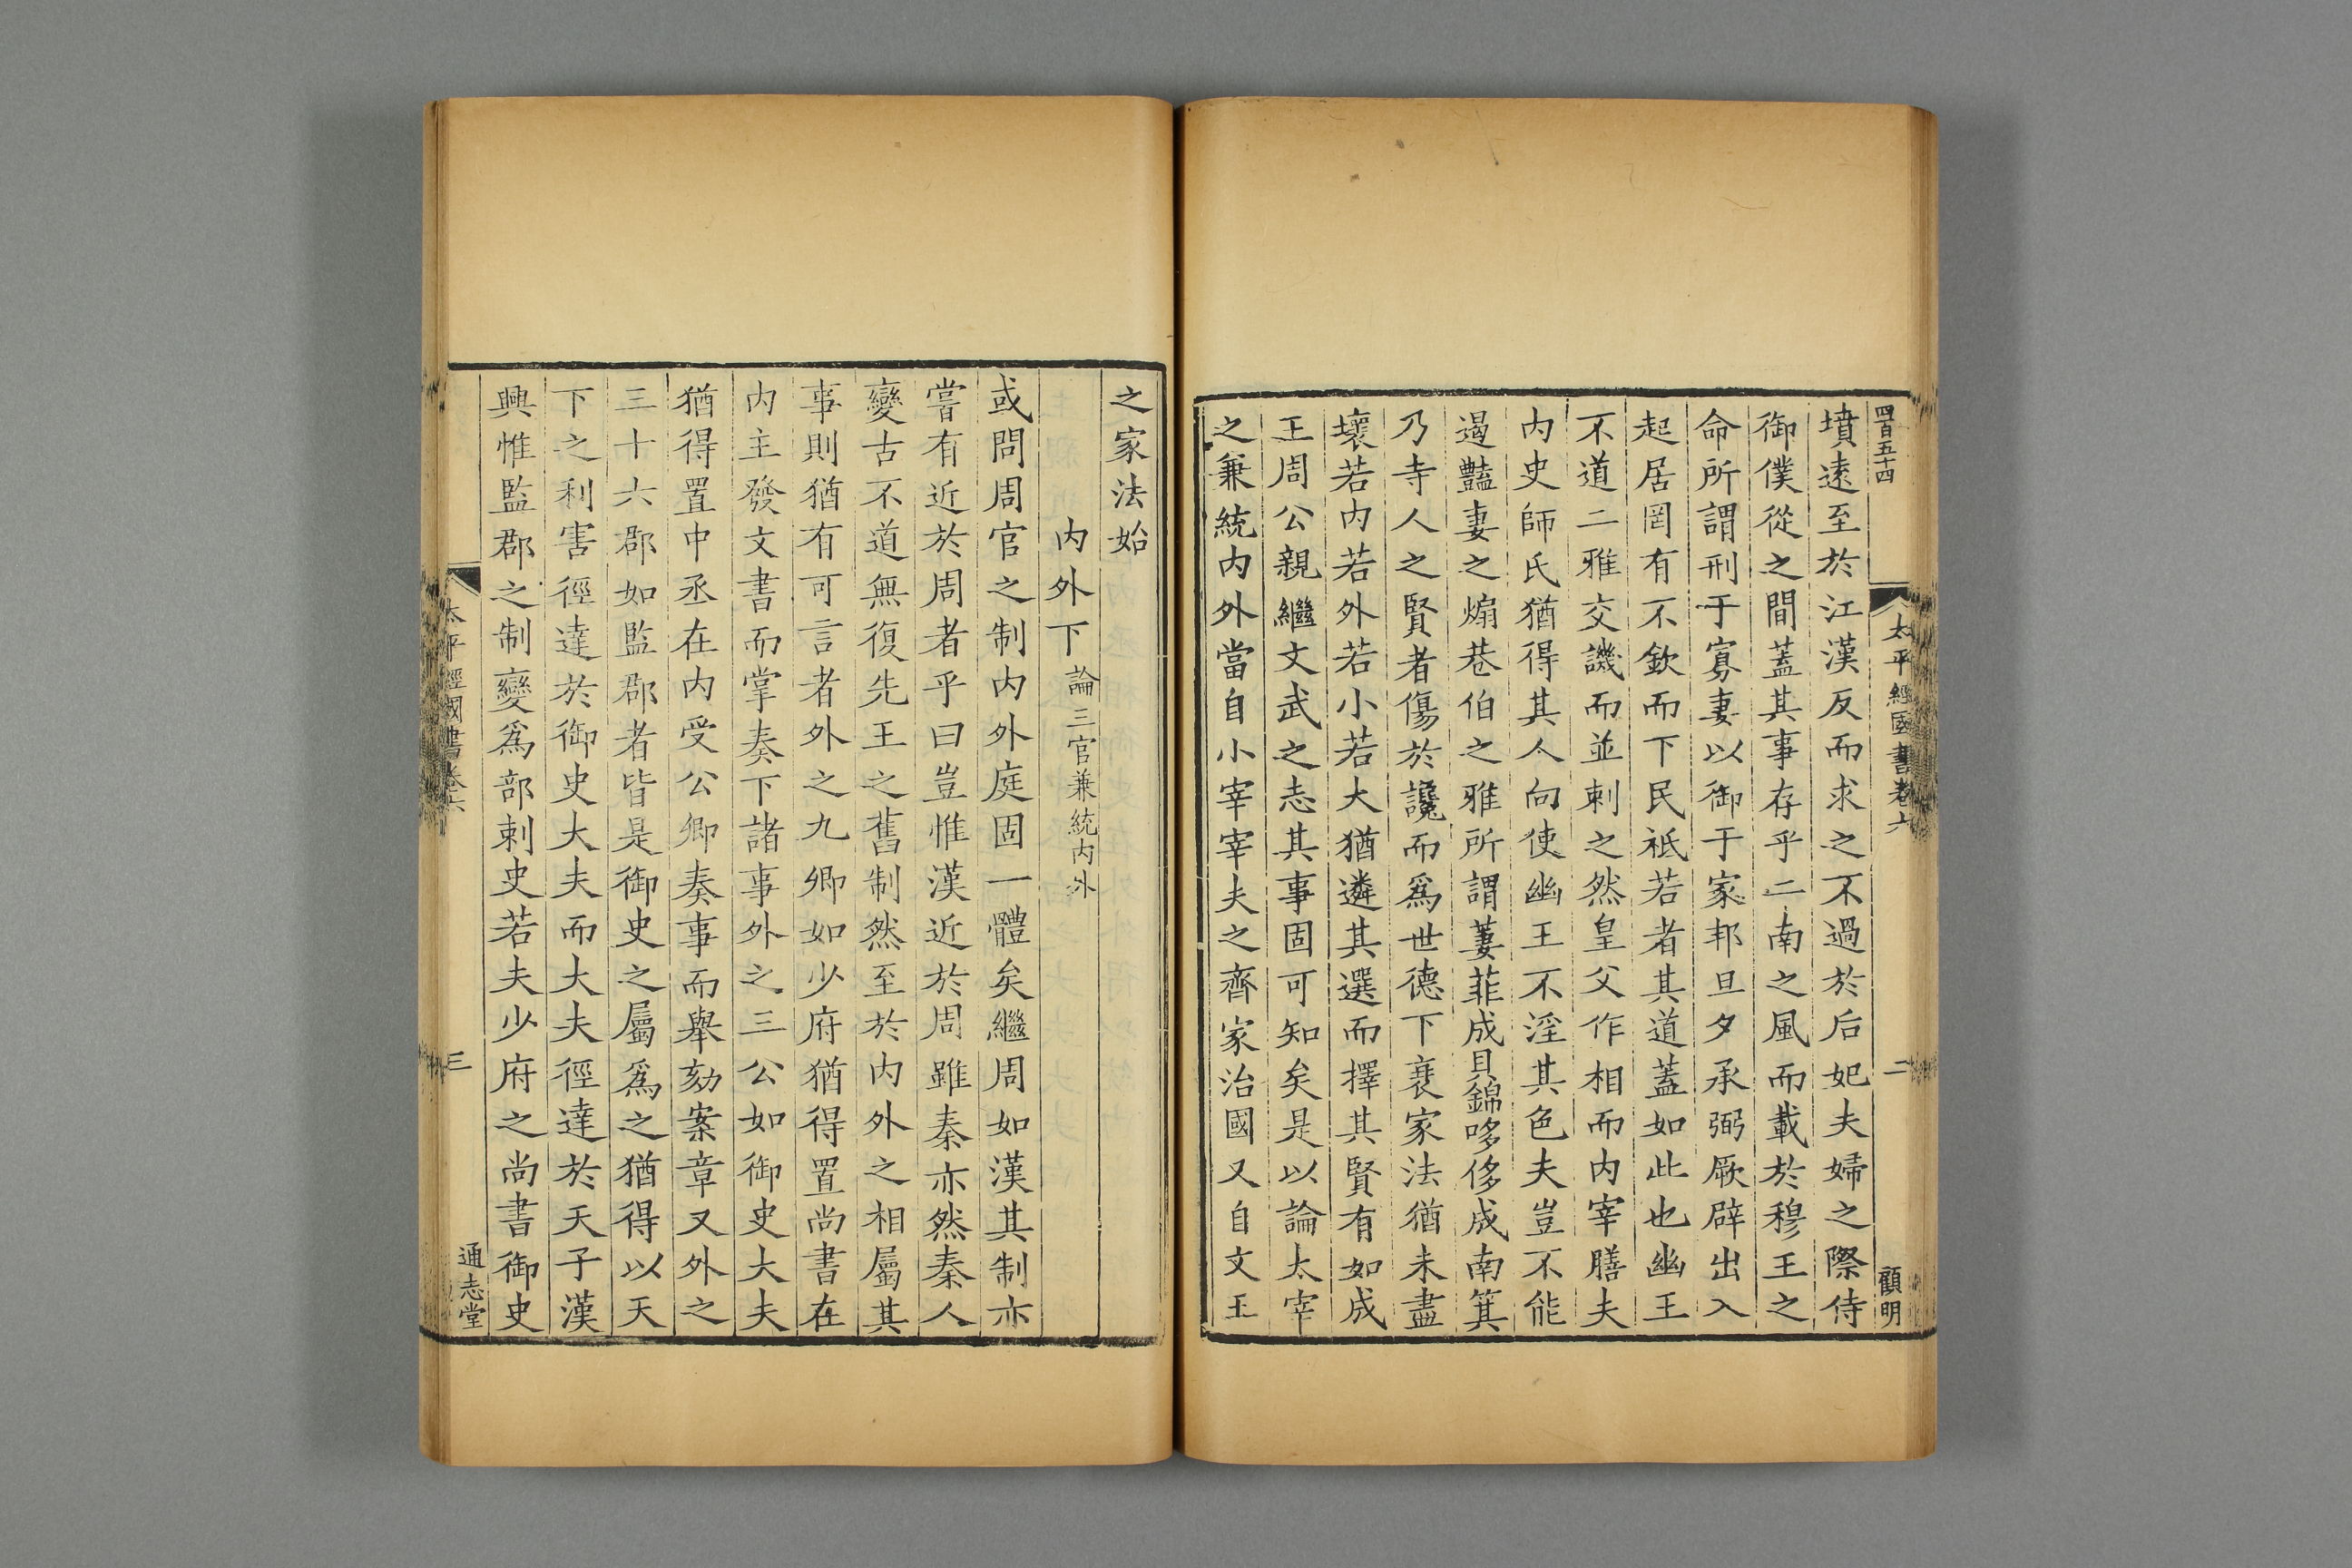 四百五十四
太平經國書卷六
二
顧明
墳遠至於江漢反而求之不過於后妃夫婦之際侍
御僕從之間蓋其事存乎二南之風而載於穆王之
命所謂刑于寡妻以御于家邦旦夕承弼厥辟出入
起居罔有不欽而下民祗若者其道蓋如此也幽王
不道二雅交譏而並刺之然皇父作相而內宰膳夫
內史師氏猶得其人向使幽王不淫其色夫豈不能
遏豔妻之煽巷伯之雅所謂萋菲成貝錦哆侈成南箕
乃寺人之賢者傷於讒而爲世德下衰家法猶未盡
壞若內若外若小若大猶遴其選而擇其賢有如成
王周公親繼文武之志其事固可知矣是以論太宰
之兼統內外當自小宰宰夫之齊家治國又自文王
之家法始
內外下論三官兼統內外
或問周官之制內外庭固一體矣繼周如漢其制亦
嘗有近於周者乎曰豈惟漢近於周雖秦亦然秦人
變古不道無復先王之舊制然至於內外之相屬其
事則猶有可言者外之九卿如少府猶得置尚書在
內主發文書而掌奏下諸事外之三公如御史大夫
猶得置中丞在內受公卿奏事而舉劾案章又外之
三十六郡如監郡者皆是御史之屬爲之猶得以天
下之利害徑達於御史大夫而大夫徑達於天子漢
興惟監郡之制變爲部刺史若夫少府之尚書御史
太平經國書卷六
三
通志堂